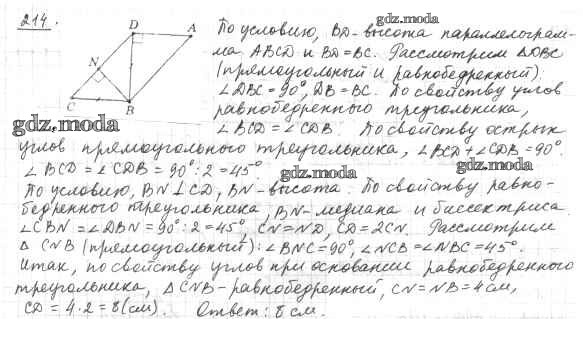 214.
По условию, BD-высота параллелограм-
ма ABCD и BD=BC. Рассмотрим △DBC
(прямоугольный и равнобедренный):
∠DBC=90°, DB=BC. По свойству углов
равнобедренного треугольника,
∠BCD=∠CDB. По свойству острых
углов прямоугольного треугольника, ∠BCD+∠CDB=90°.
∠BCD=∠CDB=90°:2=45°.
По условию, BN⊥CD, BN-высота. По свойству равно-
бедренного треугольника, BN-медиана и биссектриса.
∠CBN=∠DBN=90°:2=45°, CN=ND, CD=2CN. Рассмотрим
△CNB (прямоугольный): ∠BNC=90°, ∠NCB=∠NBC=45°.
Итак, по свойству углов при основании равнобедренного
треугольника, △CNB-равнобедренный, CN=NB=4см,
CD=4·2=8(см). Ответ: 8 см.
D
A
N
C
B
gdz.moda
gdz.moda
gdz.moda
gdz.moda
gdz.moda
gdz.moda